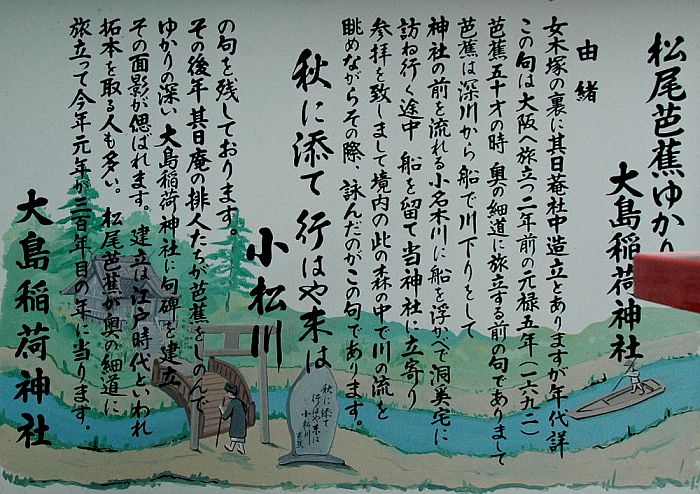 松尾芭蕉ゆかり
大島稲荷神社
由緒
女木塚の裏に其日菴社中造立とありますが年代詳
この句は大阪へ旅立つ二年前の元禄五年(一六九二)
芭蕉五十才の時奥の細道に旅立する前の句でありまして
芭蕉は深川から船で川下りをして
神社の前を流れる小名木川に船を浮かべて洞奚宅に
訪ね行く途中 船を留て当神社に立寄り
参拝を致しまして境内の此の森の中で川の流を
眺めながらその際、詠んだのがこの句であります。
秋に添て行はや末は
小松川
の句を残しております。
その後年其日庵の排人たちが芭蕉をしのんで
ゆかりの深い大島稲荷神社に句碑を建立
その面影が偲ばれます。建立は江戸時代といわれ
拓本を取る人も多い。松尾芭蕉が奥の細道に
旅立って今年元年が三百年目の年に当ります。
大島稲荷神社
秋に添て
行はや末は
小松川
芭蕉